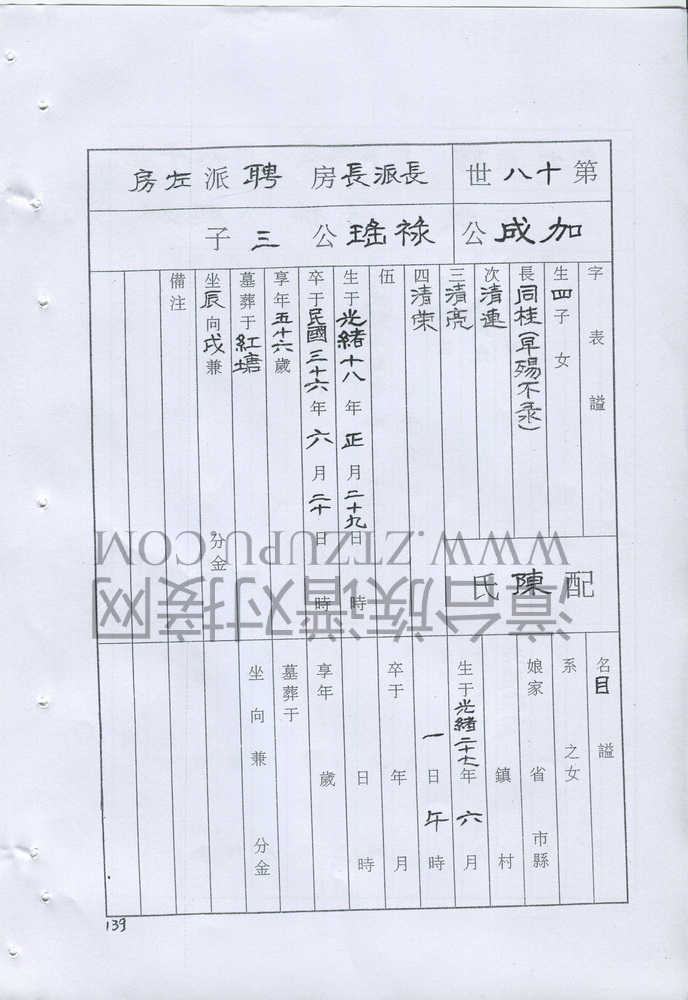 第十八世
長派長房 聘派左房
加成公
祿瑤公三子
字表諡
生四子女
長同桂(早殤不彔)
次清連
三清亮
四清荣
伍
生于光緒十八年正月二十九日時
卒于民國三十六年六月二十日時
享年五十六歲
墓葬于紅塘
坐辰向戌兼分金
備注
配陳氏
名目諡
系之女
娘家省市縣
鎮村
生于光緒二十七年六月
一日午時
卒于年月
日時
享年歲
墓葬于
坐向兼分金
139
WWW.ZTZUPU.COM
漳台族谱对接网